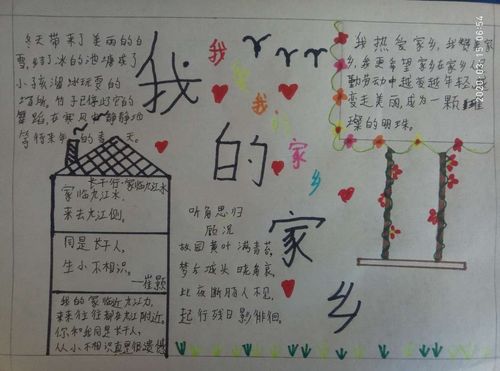 冬天带来了美丽的白
雪,结了冰的池塘成了
小孩溜冰玩耍的
等待来年的春天。
我的家乡
我爱我的家乡
我热爱家乡,我赞美家
乡,我更希望家乡在家乡人
勤劳动中越变越年轻,
变走美丽,成为一颗璀
璨的明珠。
2020.03.15 06:54
长干行·家临九江水
家临九江水,
来去九江侧。
同是长干人,
生小不相识。
—崔颢
我的家临近九江,
来来往往都在九江附近。
你和我同是长干人,
从小不相识真是很遗憾
听角思归
顾况
故园黄叶满青苔,
梦后城头晓角哀。
此夜断肠人不见,
起行残月影徘徊。